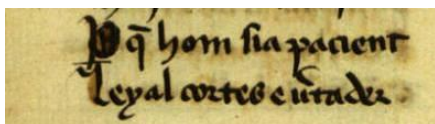 P q̄ hom sia pacient
leyal cortes e ūtader